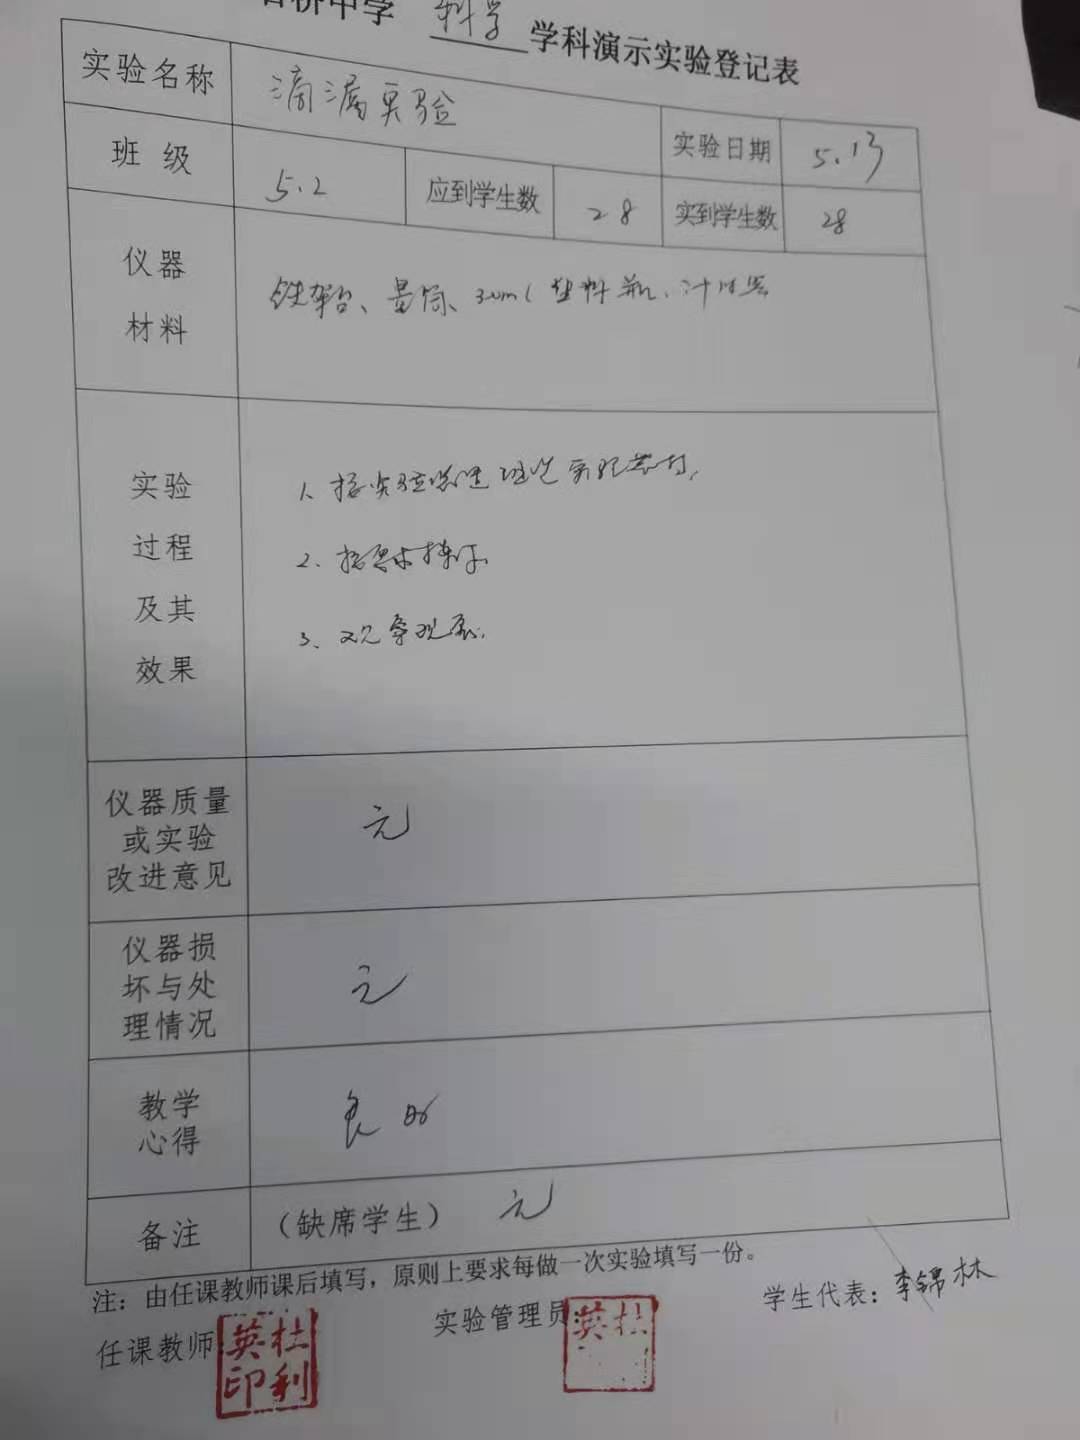 桥中学 科学 学科演示实验登记表
实验名称 滴漏实验 实验日期 5.13
班 级 5.2 应到学生数 28 实到学生数 28
仪器
材料
铁架台、量筒、300ml塑料瓶、计时器
实验
过程
及其
效果
1、按实验
2、按要求操作
3、观察现象
仪器质量
或实验
改进意见
无
仪器损
坏与处
理情况
无
教学
心得
良好
备注 (缺席学生) 无
注:由任课教师课后填写,原则上要求每做一次实验填写一份。
任课教师: 实验管理员: 学生代表:李锦林
杜利英印
杜 英